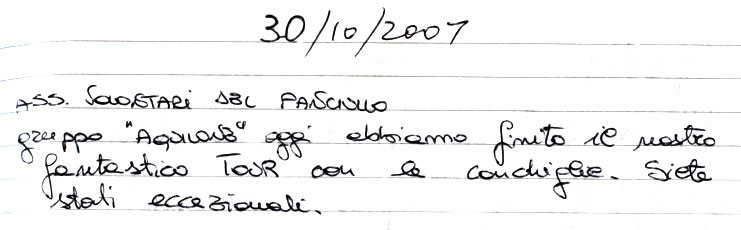 30/10/2007
ASS. VOLONTARI DEL FANCIULLO
gruppo "AQUILONE" oggi abbiamo finito il nostro
fantastico TOUR con le conchiglie. Siete
stati eccezionali.